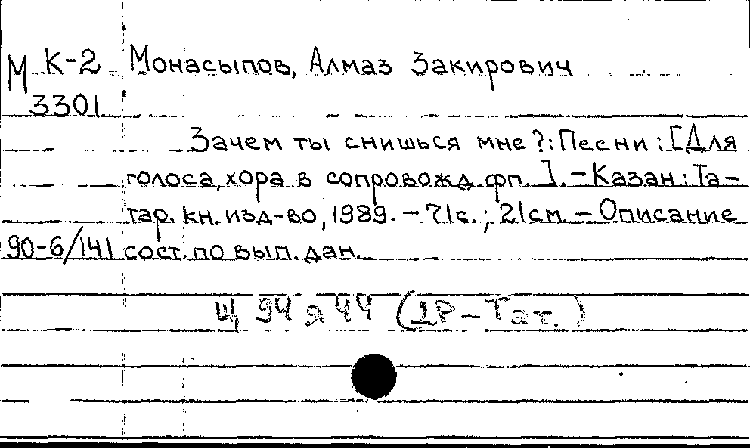 М К-2 Монасыпов, Алмаз Закирович
3301
Зачем ты снишься мне?: Песни: [Для
голоса, хора в сопровожд. фп.]. – Казан: Та-
тар. кн. изд-во, 1989. – 71с.; 21см. – Описание
90-6/141 сост. по вып. дан.
Щ 94 я 44 (2Р – Тат.)